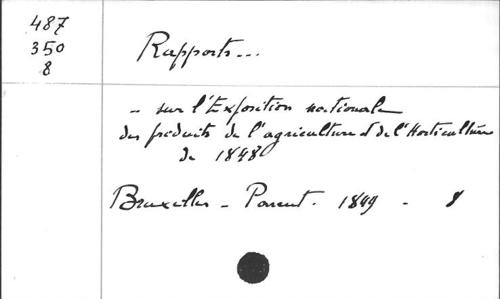 487
350
8
Rapports...
– sur l'Exposition nationale
des produits de l'agriculture et de l'Horticulture
de 1848
Bruxelles – Parent. 1849 – 8